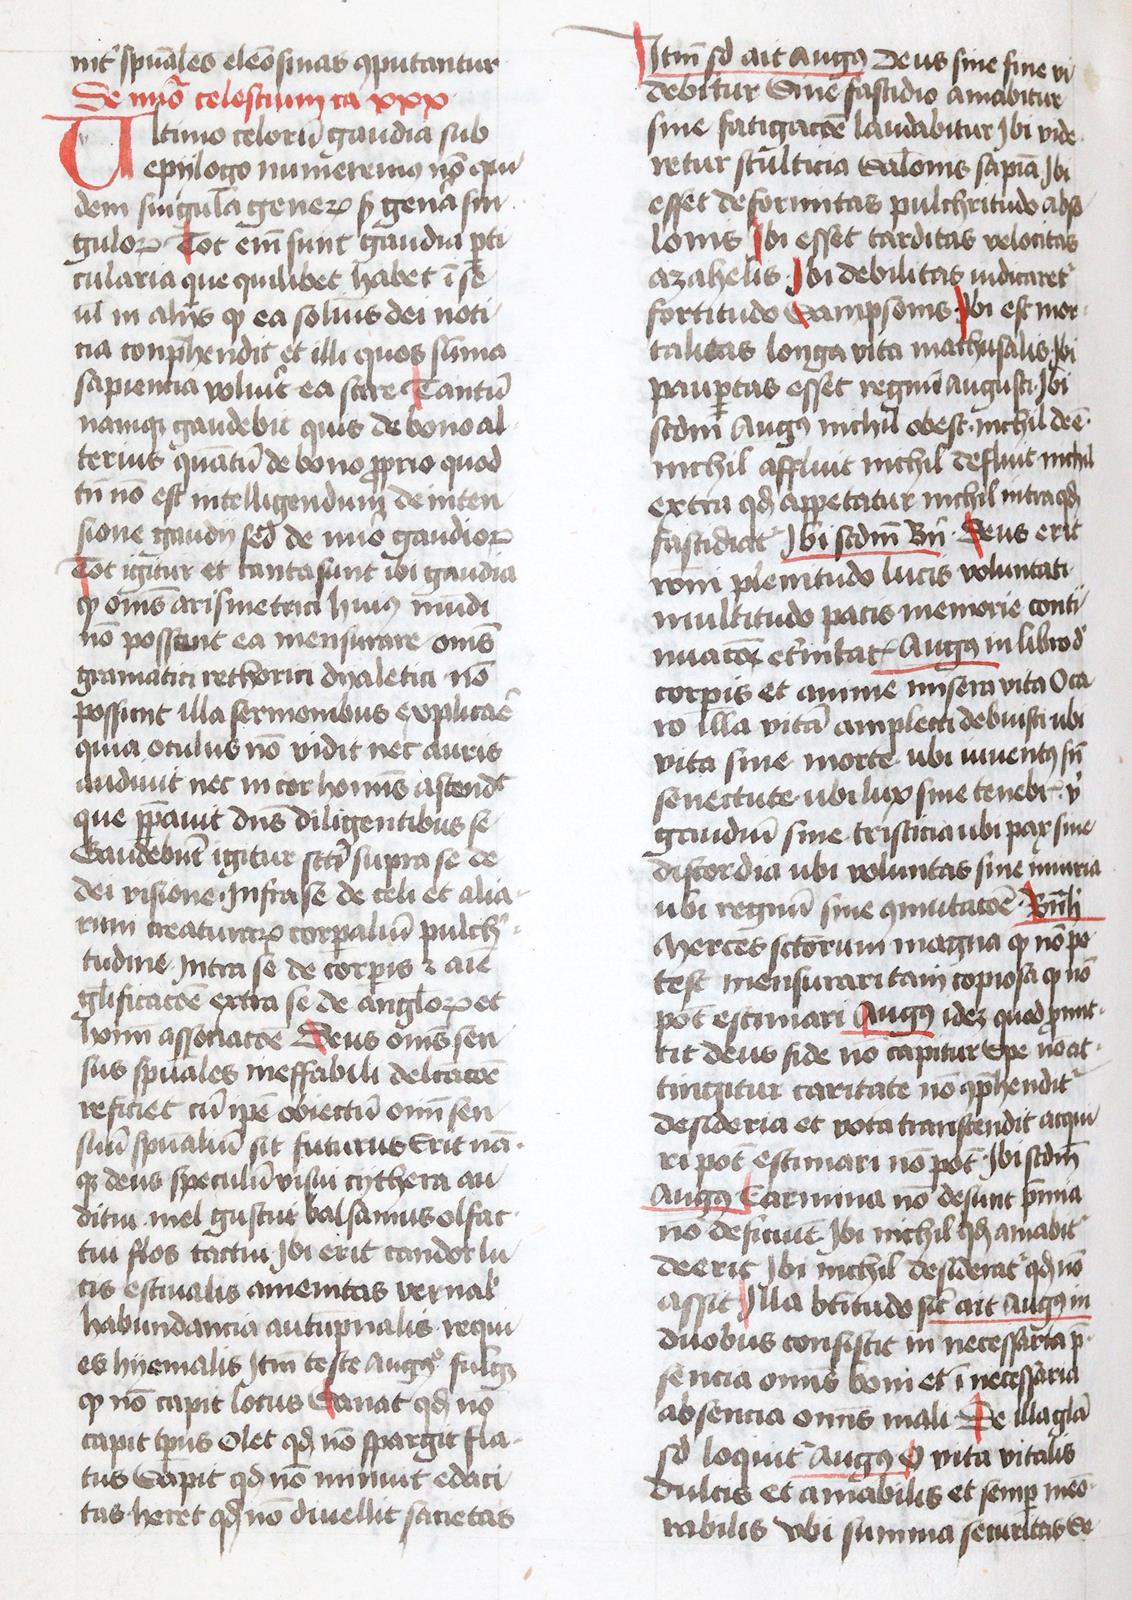 nt͛ spūales eleōsinas ꝯputantur
De nūo celestium ca xxx
Ultimo celorū gaudia sub
epylogo numeremus nō qui
dem singula geneꝝ sꝫ gena sin
guloꝝ Tot em̄ sunt gaudia ꝑti
cularia que quilibet habet ī se
ul̄ in alijs ꝙ ea solius dei noti
cia conp̄hendit et illi quos sūma
sapiencia voluīt ea scire Tantū
namqꝫ gaudebit quis de bono al
terius quātū de bono ꝓprio quod
tn̄ nō est intelligendum de inten
sione gaudij sed de nūo gaudioꝝ
Tot igitur et tanta sunt ibi gaudia
ꝙ om̄s arismetrici huiꝰ mūdi
nō possent ea mensurare om̄s
gramatici rethorici dyaletici nō
possent illa sermonibus explicaē
quia oculus nō vidit nec auris
audiuit nec in cor hoīnis ascendit
que p̄parauit dn̄s diligentibus se
Gaudebūt igitur sc̄ti supra se de
dei visione Infra se de celi et alia
rum creaturaꝝ corꝑalium pulch͛
tudine Intra se de corpis ⁊ aīe
gl̄ificacōe extra se de angl̄oꝝ et
hoīm associacōe Deus om̄s sen
sus spūales ineffabili delcacōe
reficiet cū ip̄e obiectū om̄ sen
suū spūaliū sit futurus Erit nā
qꝫ deus speculū visui cythera au
ditui mel gustui balsamus olfac
tui flos tactui Ibi erit candor lu
cis estiualis amenitas vernal̄
habundancia autūpnalis requi
es hyemalis Itm̄ teste Augꝰ fulgꝫ
ꝙ nō capit locus Sanat qd̄ nō
capit tp̄us Olet qd̄ nō spargit fla
tus Sapit qd̄ nō minuit edaci
tas heret qd̄ nō diuellit sacietas
Itm̄ sd̄ ait Augꝰ Deus sine fine vi
debitur Sine fastidio amabitur
sine fatigacōe laudabitur Ibi vide
retur stulticia Salonis sapiā Ibi
esset deformitas pulchritudo abso
lonis Ibi esset tarditas velocitas
azahelis Ibi debilitas iudicaret᷑
fortitudo Sampsonis Ibi est mor
talitas longa vita mathusalis Ibi
paupertas esset regnū Augusti Ibi
scdm̄ Augꝰ nichil obest nichil deē
nichil affluit nichil defluit nichil
extra qd̄ appetatur nichil intra qd̄
fastidiat᷑ Ibi scdm̄ Bn̄ Deus erit
roni plenitudo lucis voluntati
multitudo pacis memorie conti
nuacōe et͛nitat͛ Augꝰ in libro d͛
corpis et anime misera vita O ca
ro illa vitā amplecti debuisti ubi
vita sine morte ubi iuuentꝰ sn̄
senectute ubi lux sine tenebr᷑ ubi
gaudiū sine tristicia ubi pax sine
discordia ubi voluntas sine iniuria
ubi regnū sine ꝯmutacōe Bn̄h
Merces sctorum magna ꝙ nō po
test mensurari tam copiosa ꝙ nō
pot̄ estimari Augꝰ idez quod ꝓmit
tit deus fide nō capitur Spe nō at
tingitur caritate nō ꝯp̄hendit᷑
desideria et vota transcendit acqui
ri pot̄ estimari nō pot̄ Ibi scdm̄
Augꝰ Carmina nō desunt p̄mia
nō deficiūt Ibi nichil qd̄ amabit᷑
deerit Ibi nichil desiderat᷑ qd̄ nō
assit Illa btitudo sic̄ ait Augꝰ in
duobus consistit in necessaria p̄
sencia om̄s boni et ī necessaria
absencia om̄s mali De illa gl̄a
sd̄ loquit᷑ Augꝰ O vita vitalis
dulcis et amabilis et semꝑ meō
rabilis vbi summa securitas Se